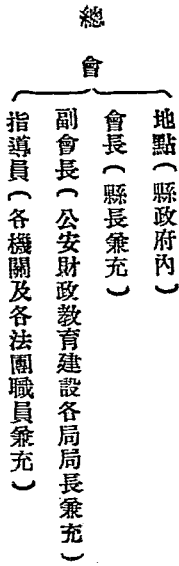 總會
地點(縣政府內)
會長(縣長兼充)
副會長(公安財政教育建設各局局長兼充)
指導員(各機關及各法團職員兼充)